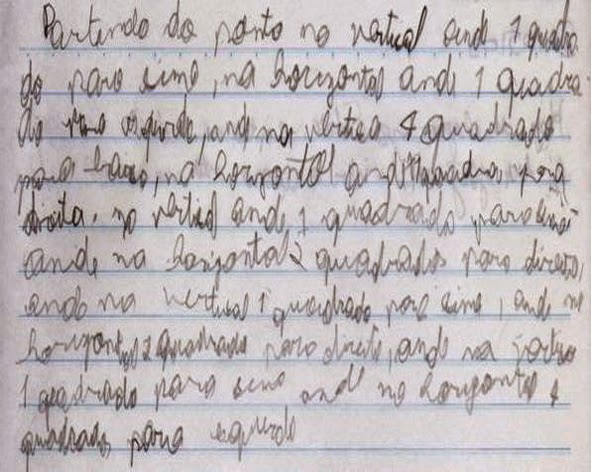 Partindo do ponto na vertical ande 1 quadra
do para cima, na horizontal ande 1 quadra
do para esquerda, ande na vertical 4 quadrado
para baixo, na horizontal ande quadra para
direita. na vertical ande 1 quadrado para cima
ande na horizontal 2 quadrados para direita,
ande na vertical 1 quadrado para cima, ande na
horizontal 2 quadrado para direita, ande na
1 quadrado para cima ande na horizontal 4
quadrado para esquerda